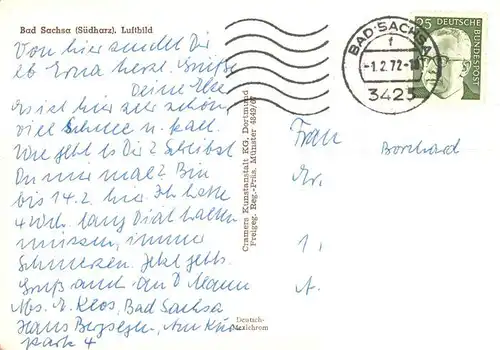 Bad Sachsa (Südharz). Luftbild
Von hier sendet Dir
lb Erna herzl. Grüße
Deine Else
Es ist hier sehr schön,
viel Schnee u. kalt.
Wie geht es Dir? Schreibst
Du mir mal? Bin
bis 14.2. hier. Ich habe
4 Wch. lang Diät halten
müssen, immer
Schmerzen. Jetzt gehts.
Gruß auch an D Mann
Abs. E. Klos, Bad Sachsa
Haus Bergsegen, Am Kur
park 4
Cramers Kunstanstalt KG. Dortmund
Freigeg. Reg.-Präs. Münster 4849/67
Deutsch-
BAD SACHSA
f
-1.2.72-
3423
25 DEUTSCHE
BUNDESPOST
Frau
Borchard